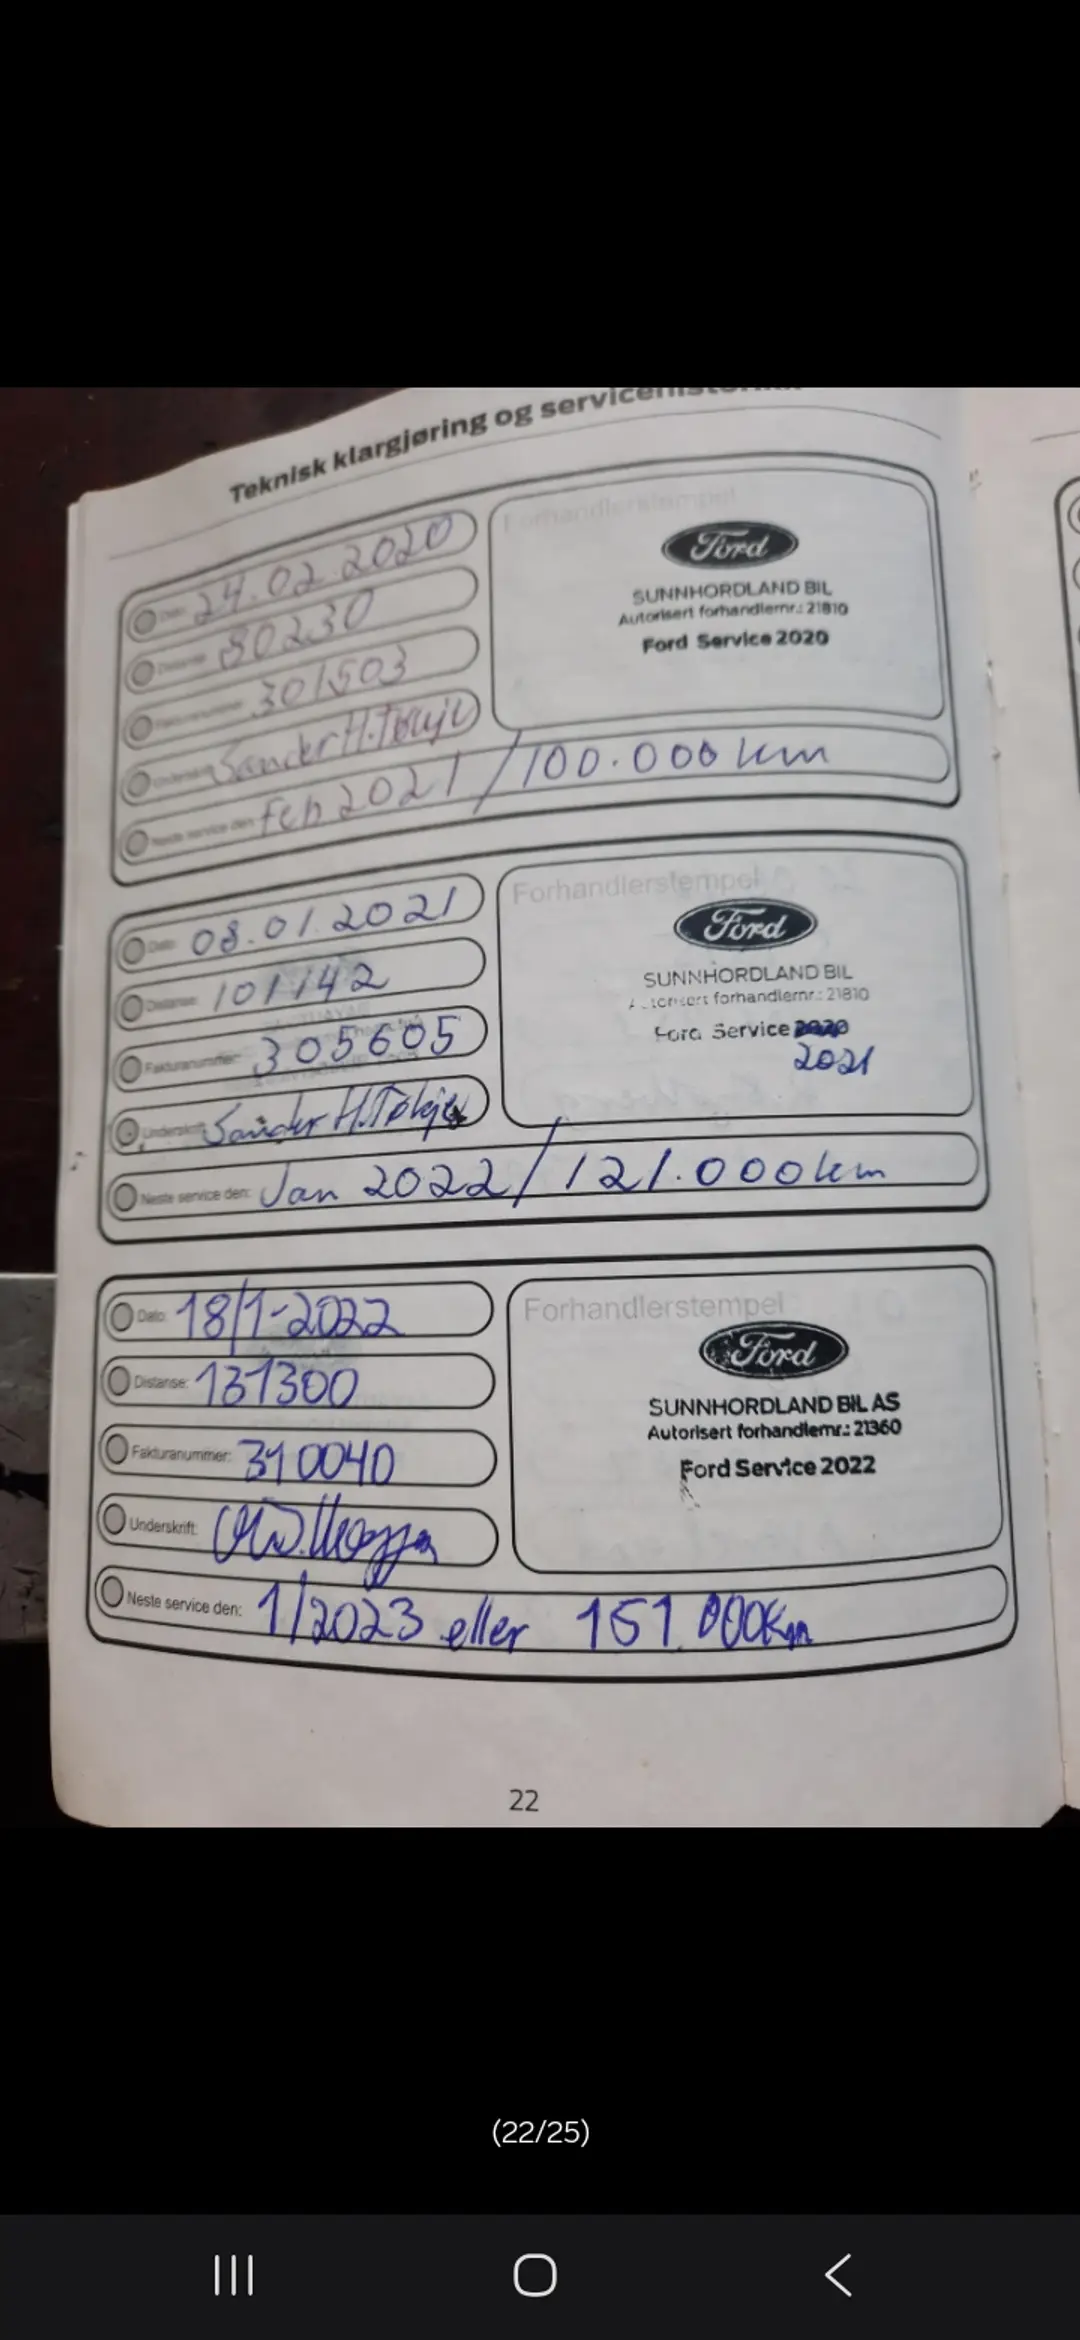 Teknisk klargjøring og servicehistorikk
Dato: 24.02.2020
Distanse: 80230
Fakturanummer: 301503
Underskrift: Sander H.
Neste service den: Feb 2021 / 100.000 km
Forhandlerstempel
Ford
SUNNHORDLAND BIL
Autorisert forhandlernr.: 21810
Ford Service 2020
Dato: 08.01.2021
Distanse: 101142
Fakturanummer: 305605
Underskrift: Sander H.
Neste service den: Jan 2022 / 121.000 km
Forhandlerstempel
Ford
SUNNHORDLAND BIL
Autorisert forhandlernr.: 21810
Ford Service 2020
2021
Dato: 18/1-2022
Distanse: 131300
Fakturanummer: 310040
Underskrift:
Neste service den: 1/2023 eller 151.000Km
Forhandlerstempel
Ford
SUNNHORDLAND BIL AS
Autorisert forhandlernr.: 21360
Ford Service 2022
22
(22/25)